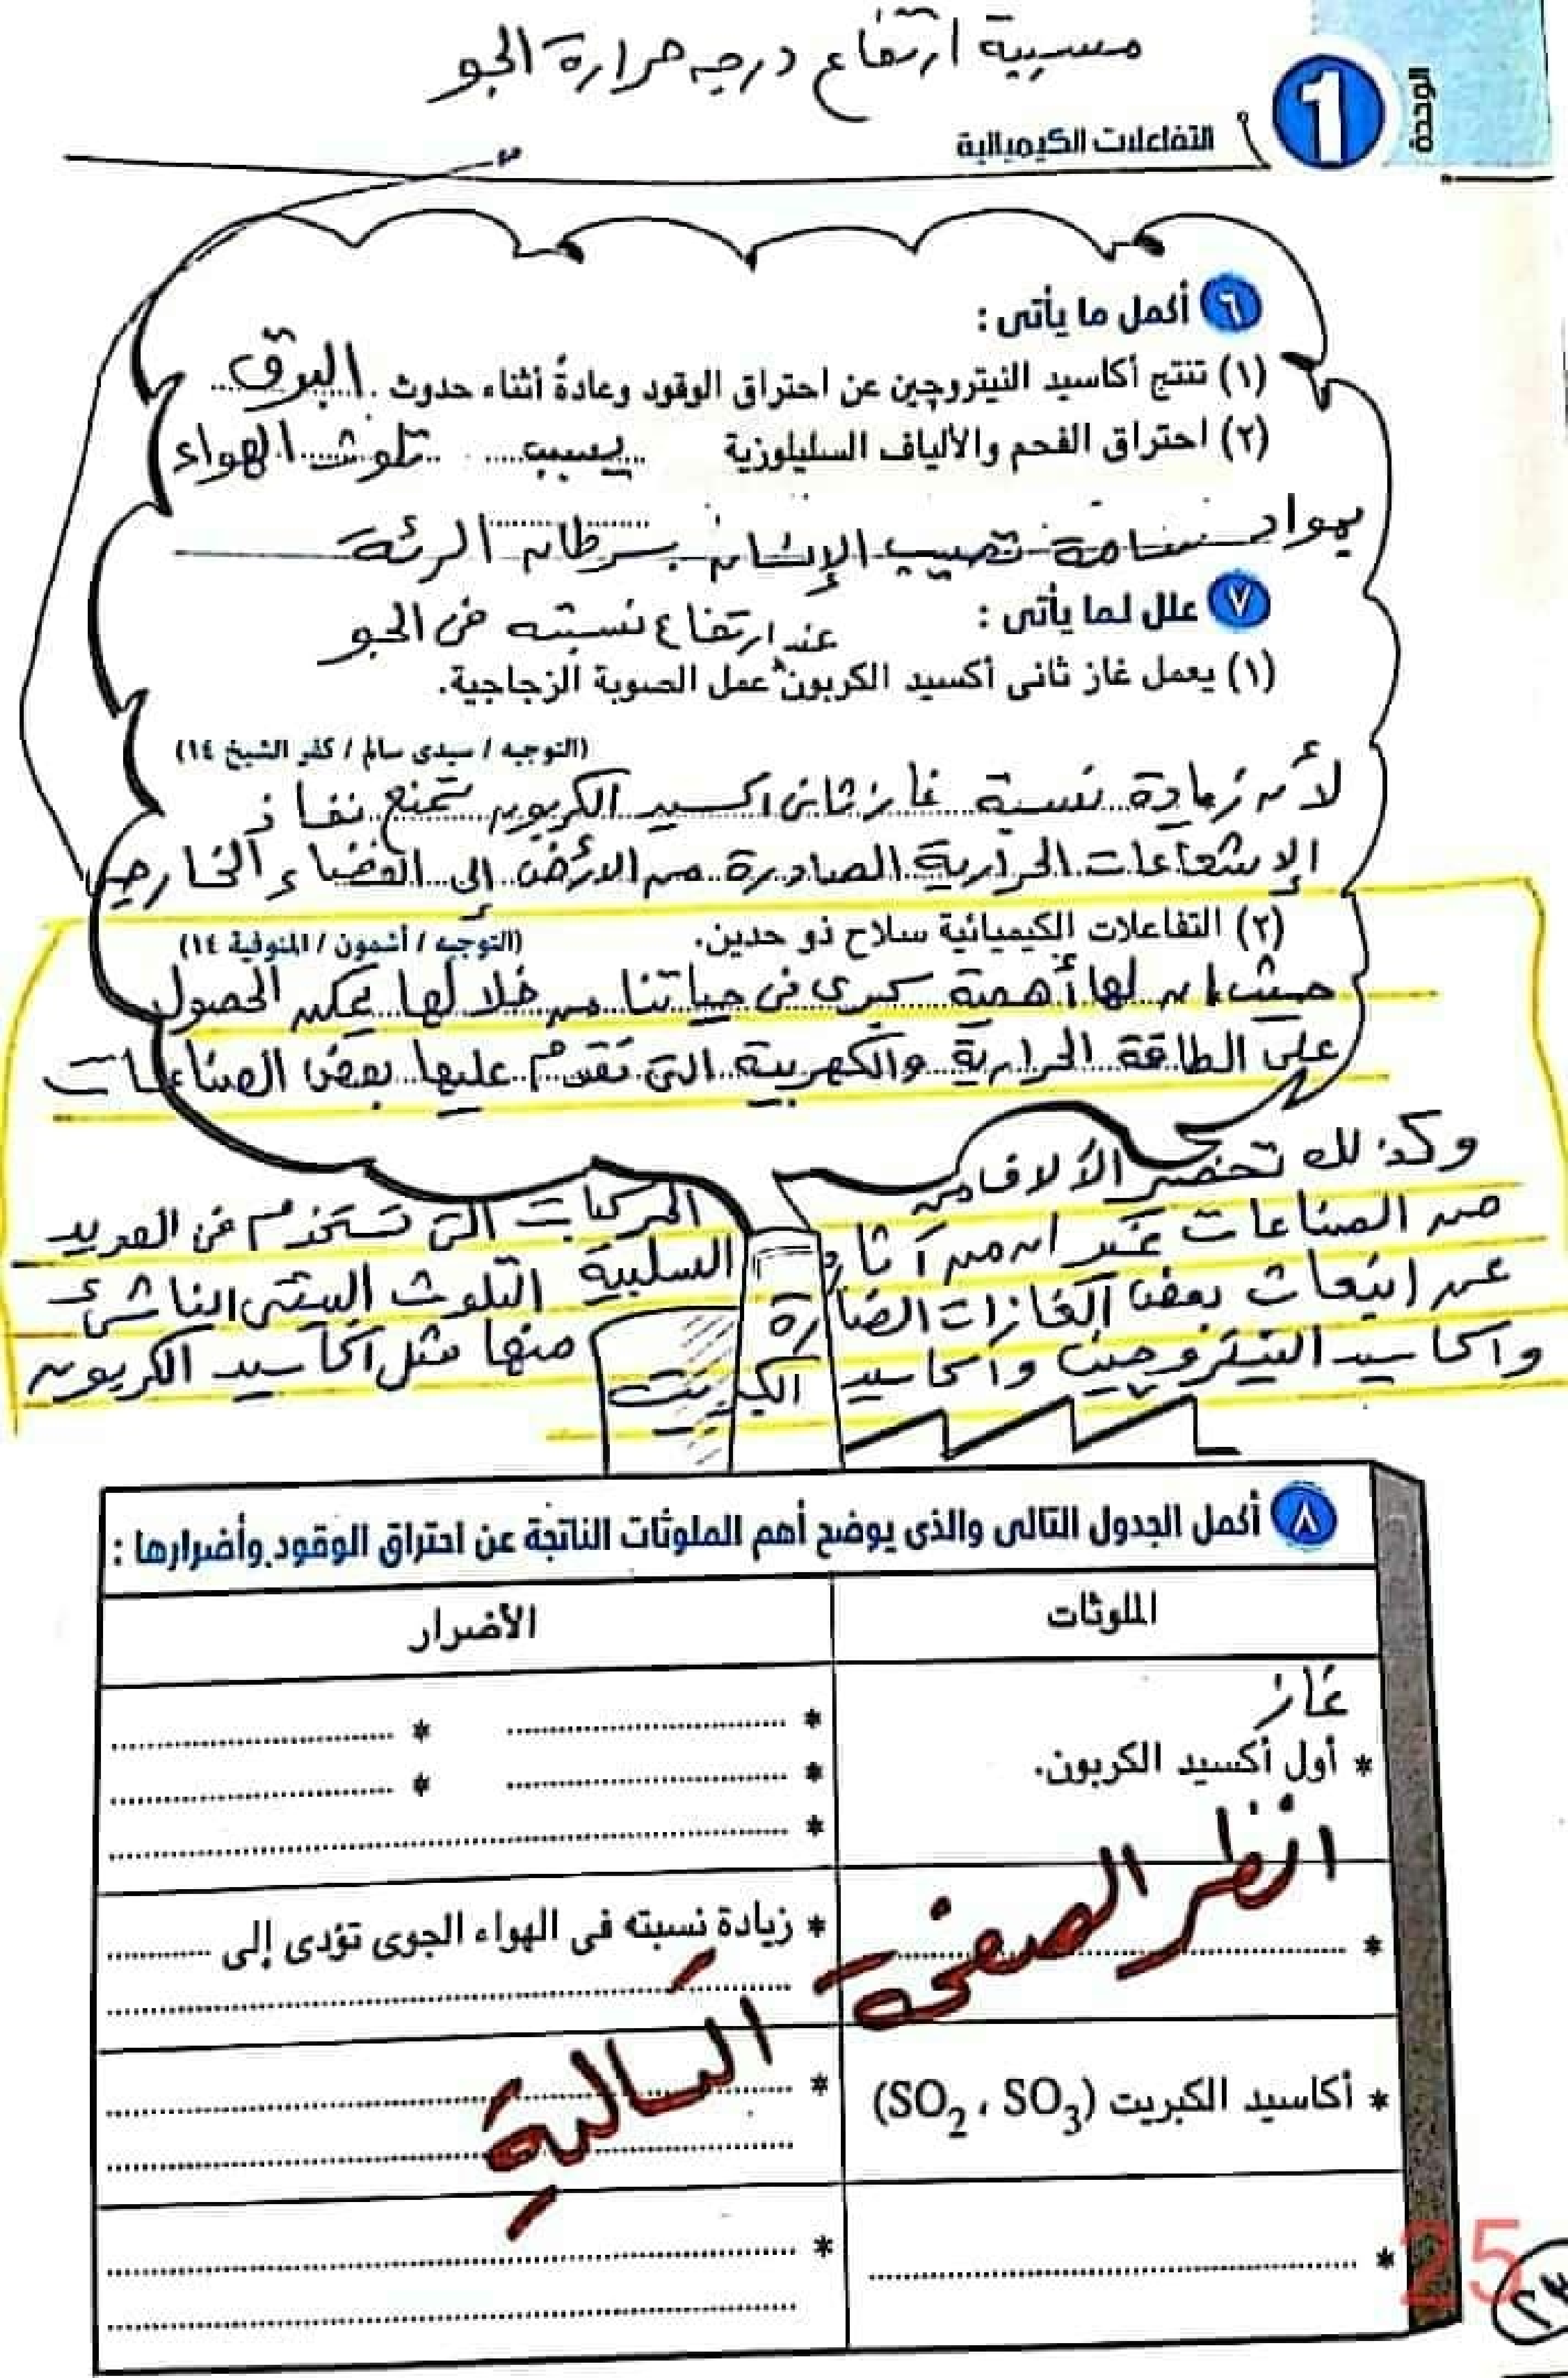 مسببة ارتفاع درجه حرارة الجو
الوحدة
1
التفاعلات الكيميائية
٦ أكمل ما يأتى :
(١) تنتج أكاسيد النيتروچين عن احتراق الوقود وعادةً أثناء حدوث البرق
(٢) احتراق الفحم والألياف السليلوزية يسبب تلوث الهواء
بمواد سامة تصيب الإنسان بسرطان الرئة
٧ علل لما يأتى :
عند ارتفاع نسبته فى الجو
(١) يعمل غاز ثانى أكسيد الكربون عمل الصوبة الزجاجية.
(التوجيه / سيدى سالم / كفر الشيخ ١٤)
لأن زيادة نسبة غاز ثانى اكسيد الكربون تمنع نفاذ
الإشعاعات الحرارية الصادرة من الأرض إلى الفضاء الخارجى
(٢) التفاعلات الكيميائية سلاح ذو حدين.
(التوجيه / أشمون / المنوفية ١٤)
حيث ان لها أهمية كبرى فى حياتنا من خلالها يمكن الحصول
على الطاقة الحرارية والكهربية التى تقوم عليها بعض الصناعات
وكذلك تحضير الآلاف من المركبات التى تستخدم فى العديد
من الصناعات غير ان من آثارة السلبية التلوث البيئى الناشئ
عن انبعاث بعض الغازات الضارة منها مثل اكاسيد الكربون
واكاسيد النيتروجين واكاسيد الكبريت
٨ أكمل الجدول التالى والذى يوضح أهم الملوثات الناتجة عن احتراق الوقود وأضرارها :
الملوثات
الأضرار
غاز
* أول أكسيد الكربون.
* *
* *
*
انظر الصفحة التالية
*
* زيادة نسبته فى الهواء الجوى تؤدى إلى
* أكاسيد الكبريت (SO2 ، SO3)
*
*
*
25